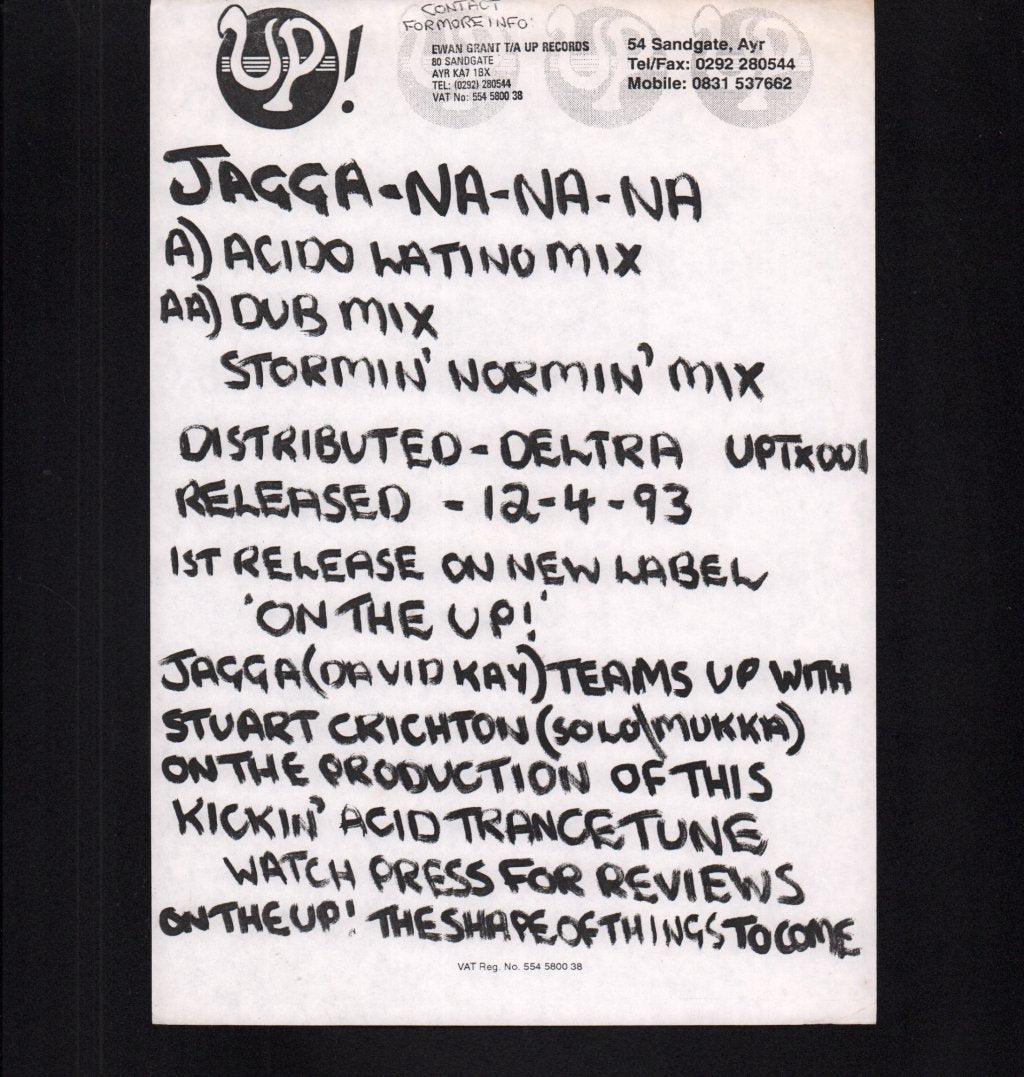 UP!
CONTACT
FOR MORE INFO:
EWAN GRANT T/A UP RECORDS
80 SANDGATE
AYR KA7 1BX
TEL: (0292) 280544
VAT No: 554 5800 38
54 Sandgate, Ayr
Tel/Fax: 0292 280544
Mobile: 0831 537662
JAGGA-NA-NA-NA
A) ACIDO LATINO MIX
AA) DUB MIX
STORMIN' NORMIN' MIX
DISTRIBUTED - DELTRA UPTX001
RELEASED - 12-4-93
1ST RELEASE ON NEW LABEL
'ON THE UP!'
JAGGA (DAVID KAY) TEAMS UP WITH
STUART CRICHTON (SOLO\MUKKA)
ON THE PRODUCTION OF THIS
KICKIN' ACID TRANCE TUNE
WATCH PRESS FOR REVIEWS
ON THE UP! THE SHAPE OF THINGS TO COME
VAT Reg. No. 554 5800 38